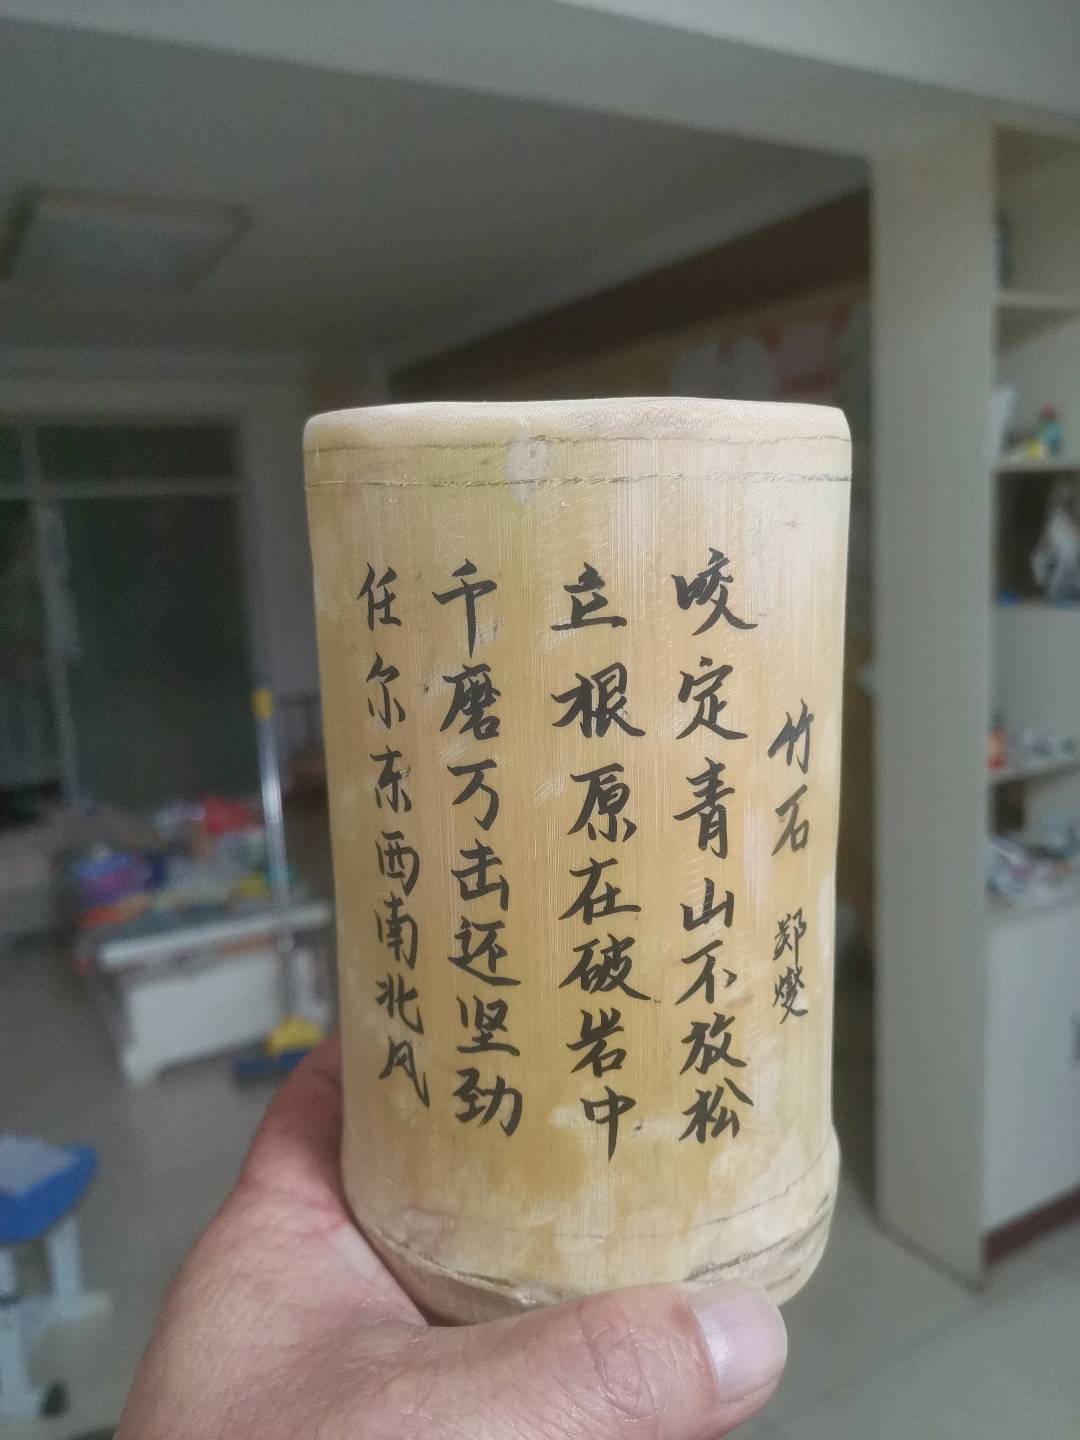 竹石 郑燮
咬定青山不放松
立根原在破岩中
千磨万击还坚劲
任尔东西南北风